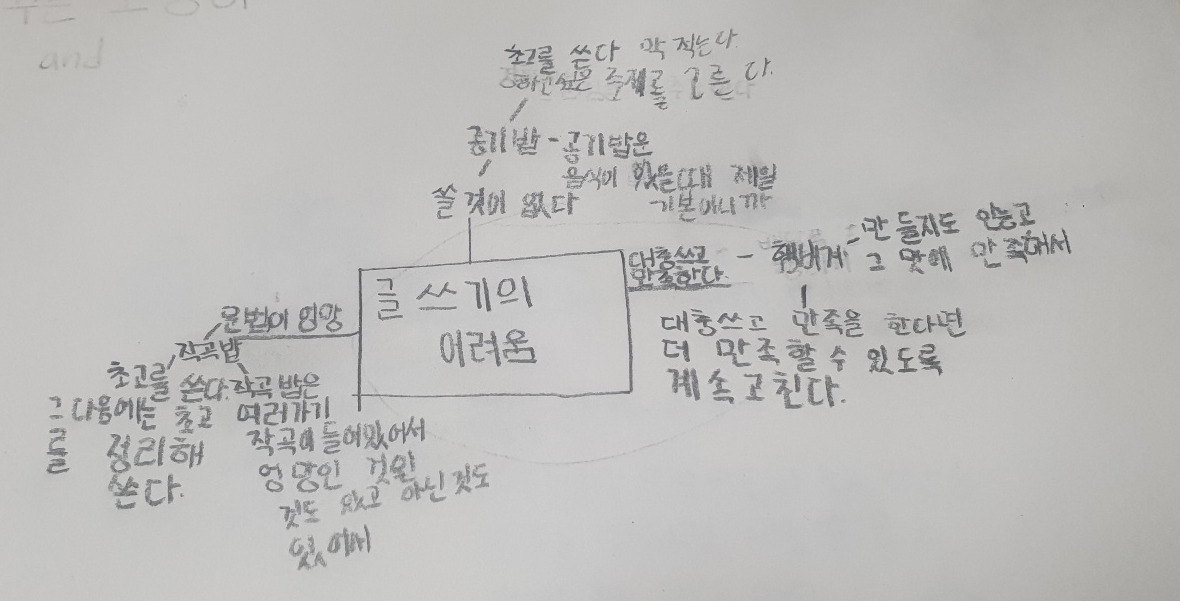 and
초고를 쓴다 막 적는다
하고싶은 주제를 고른다.
공기밥 - 공기밥은
음식이 있을때 제일
기본이니까
쓸 것이 없다
글쓰기의
어려움
대충쓰고
만족한다. - 햄버거 - 만들지도 안능고
그 맛에 만족해서
대충쓰고 만족을 한다면
더 만족할 수 있도록
계속 고친다.
문법이 엉망
작곡밥
초고를 쓴다.
그다음에는 초고
를 정리해
쓴다.
작곡밥은
여러가기
작곡이 들어있어서
엉망인 것인
것도 있고 아닌것도
있어서